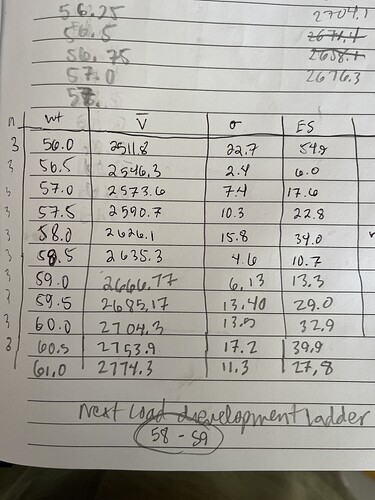 56.25 2704.1
56.5 2671.4
56.75 2658.1
57.0 2676.3
57.
n wt V̅ σ ES
3 56.0 2511.8 22.7 54.9
3 56.5 2546.3 2.4 6.0
5 57.0 2573.6 7.4 17.6
3 57.5 2590.7 10.3 22.8
3 58.0 2626.1 15.8 34.0
3 58.5 2635.3 4.6 10.7
3 59.0 2666.77 6.13 13.3
59.5 2685.17 13.40 29.0
3 60.0 2704.3 32.9
3 60.5 2753.9 17.2 39.9
61.0 2774.3 11.3 27.8
Next Load development ladder
58 - 59